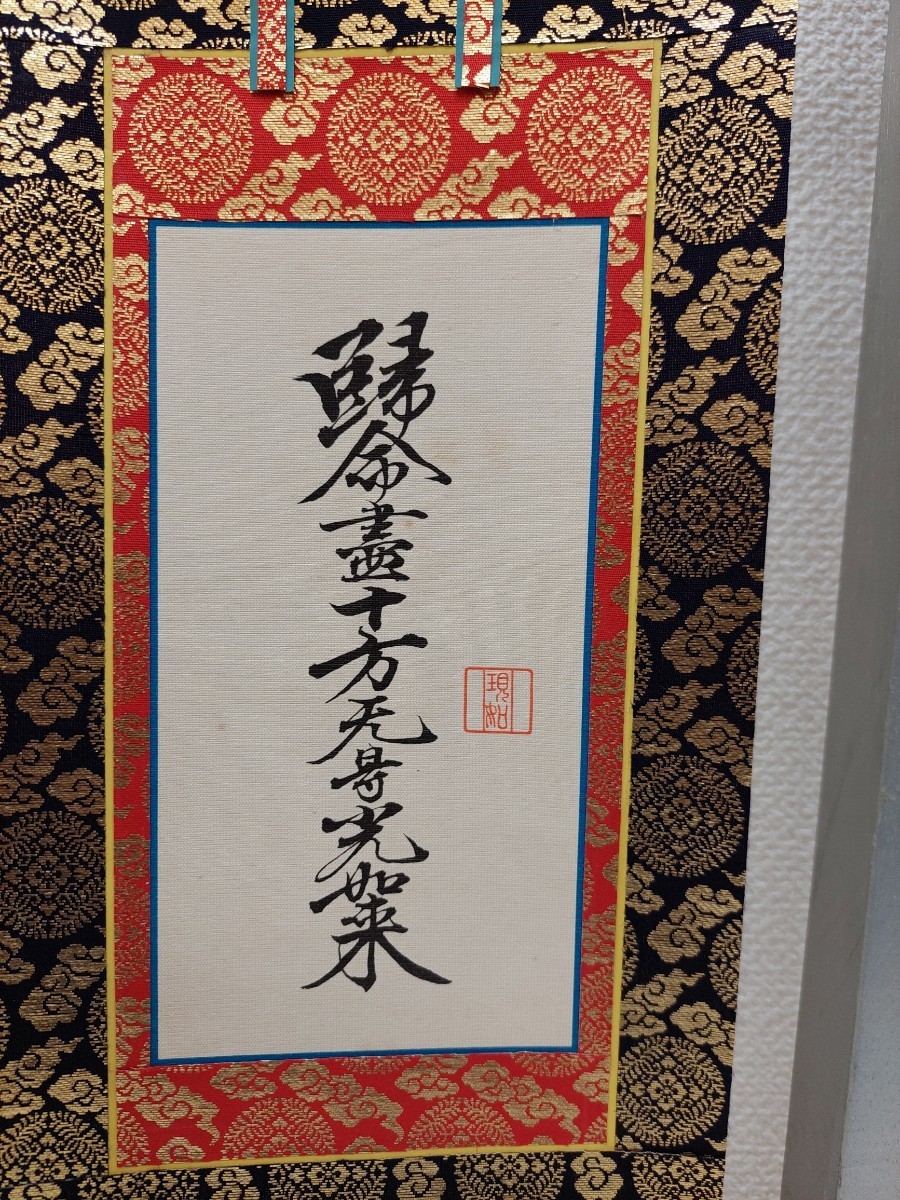 歸命盡十方无㝵光如來
現如